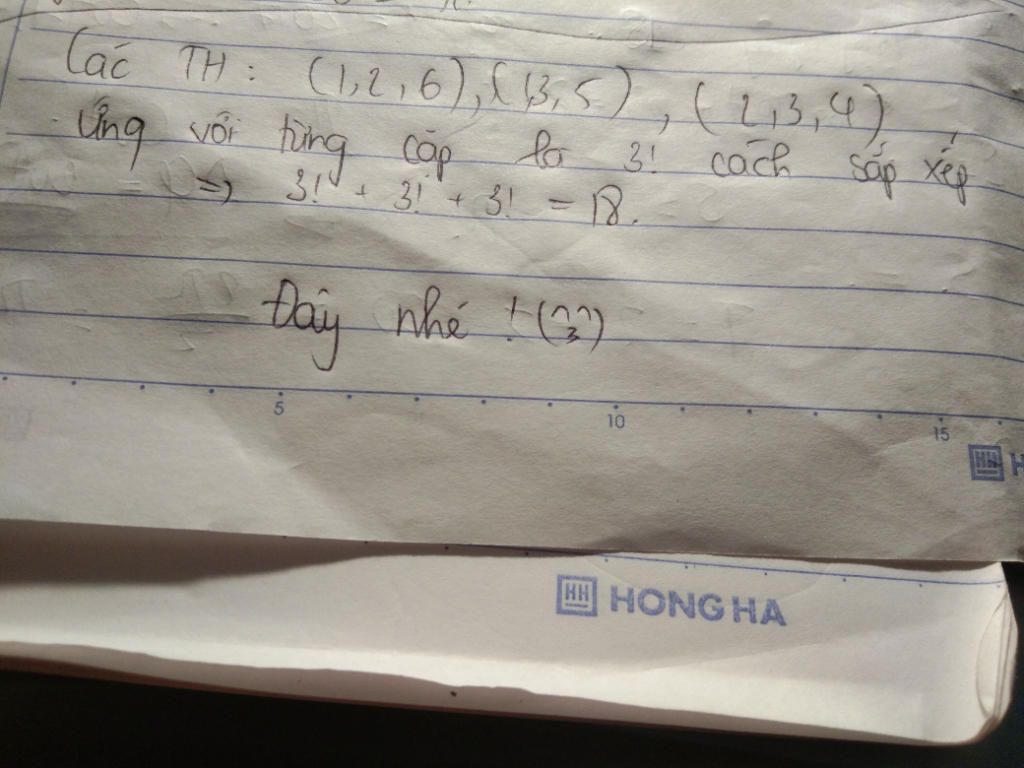 Các TH : (1,2,6), (1,3,5), (2,3,4)
Ứng với từng cặp là 3! cách sắp xếp
=> 3! + 3! + 3! = 18.
Đây nhé ! (^^3)
5 10 15
HH H
HH HONG HA